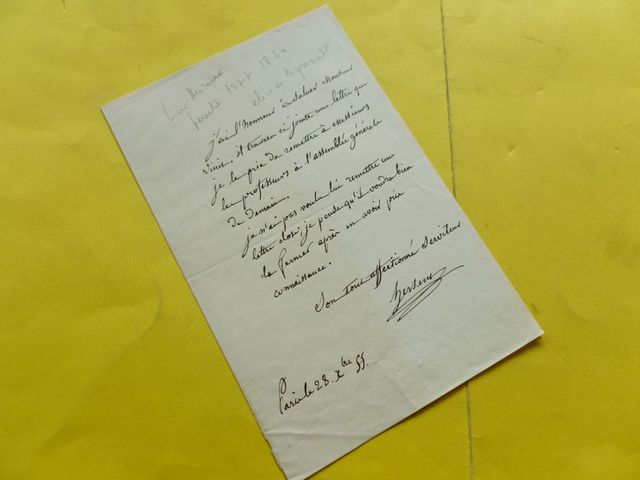 1827 1860
élève de Regnault
j'ai l'honneur de saluer Monsieur
Vinit, il trouvera ci jointe une lettre que
je le prie de remettre à messieurs
les professeurs à l'assemblée générale
de demain.
je n'ai pas voulu lui remettre une
lettre close, je pense qu'il voudra bien
la fermer après en avoir pris
connaissance.
Son tout affectionné Serviteur
hersent
Paris le 28. Xbre 55.